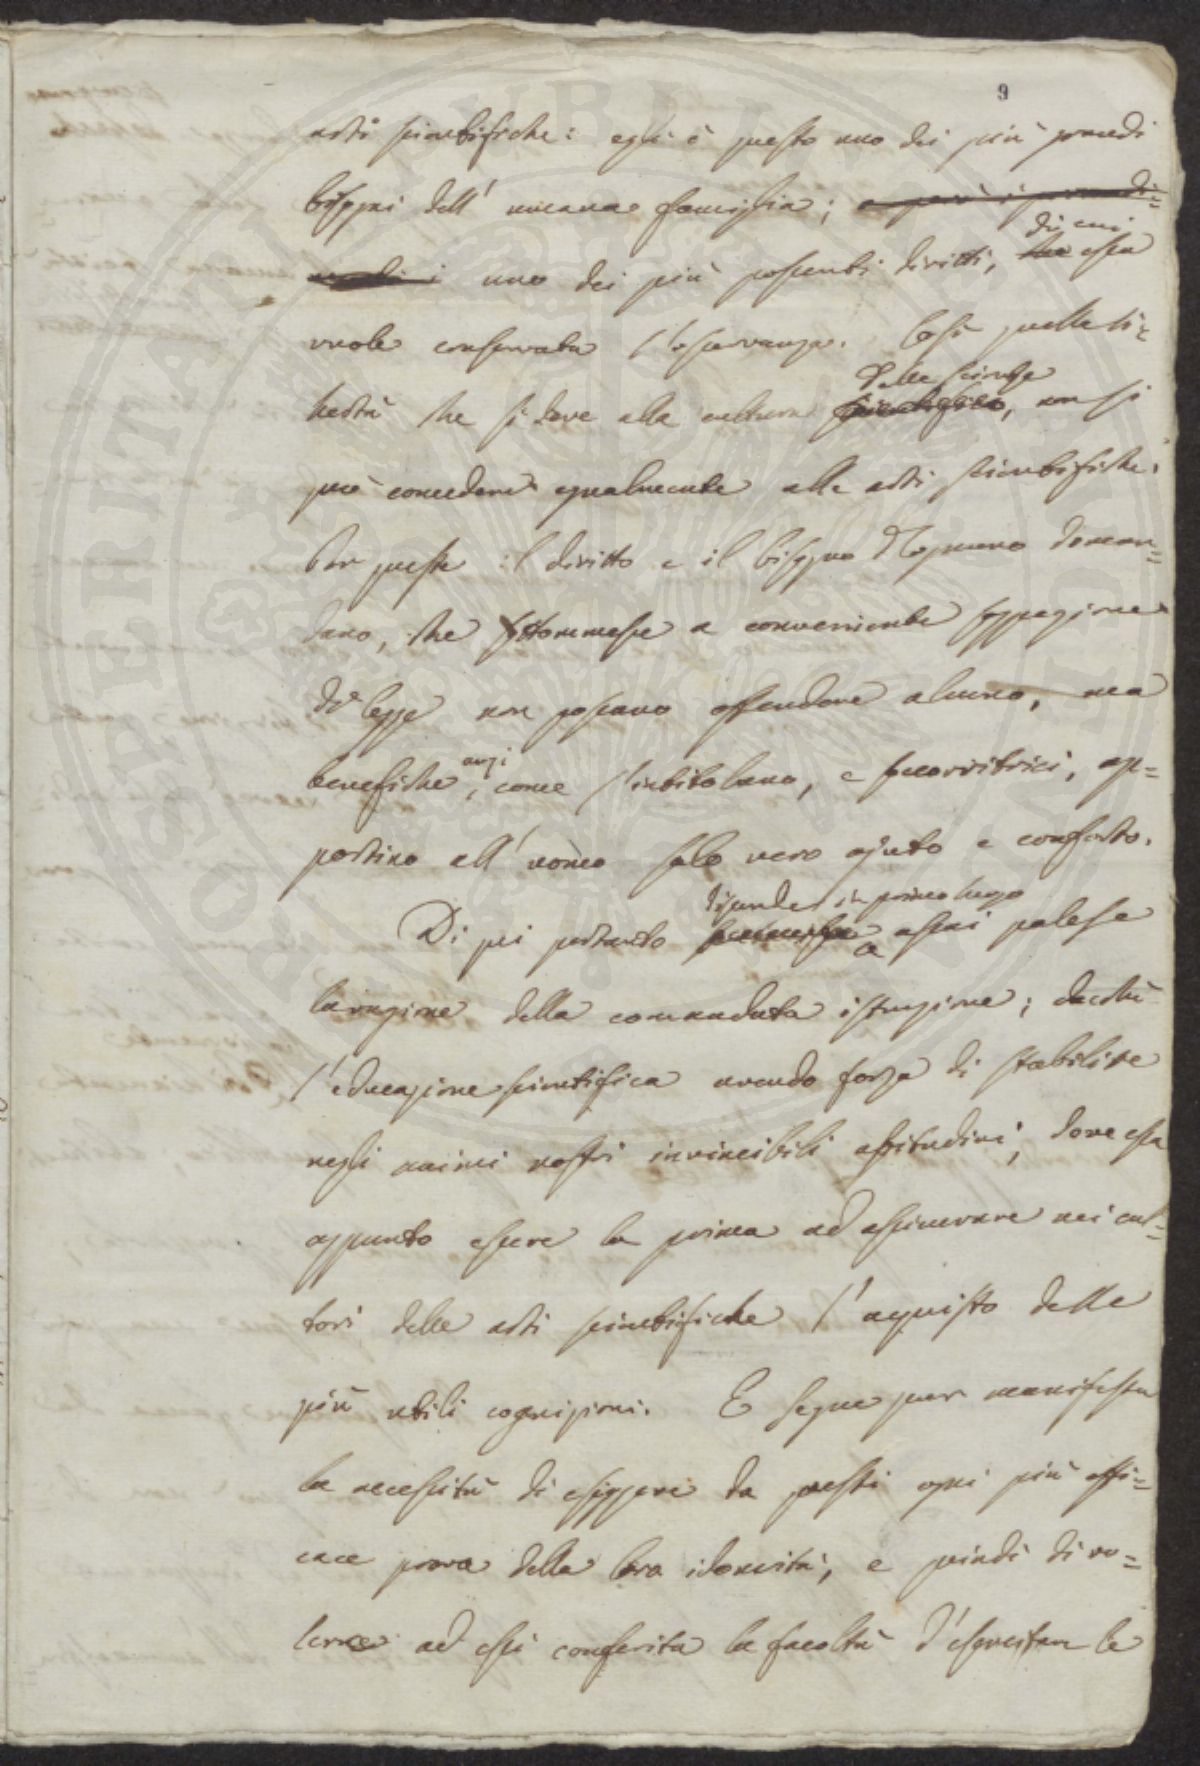 9
arti scientifiche: egli è questo uno dei più grandi
bisogni dell'umana famiglia;
uno dei più possenti diritti, di cui essa
vuole conservata l'osservanza. Così quella li-
bertà che si deve alla cultura delle scienze, non si
può concedere egualmente alle arti scientifiche.
Per queste il diritto e il bisogno d'ognuno doman-
dano, che sottomesse a conveniente soggezione
di legge non possano offendere alcuno, ma
benefiche anzi, come s'intitolano, e soccorritrici, ap-
portino all'uomo solo vero ajuto e conforto.
Di qui pertanto discende in primo luogo assai palese
la ragione della comandata istruzione; dacchè
l'educazione scientifica avendo forza di stabilire
negli animi nostri invincibili abitudini, deve essa
appunto essere la prima ad assicurare nei cul-
tori delle arti scientifiche l'acquisto delle
più utili cognizioni. E segue pur manifesta
la necessità di esiggere da questi ogni più effi-
cace prova della loro idoneità, e quindi di vo-
lerne ad essi conferita la facoltà d'esercitare le